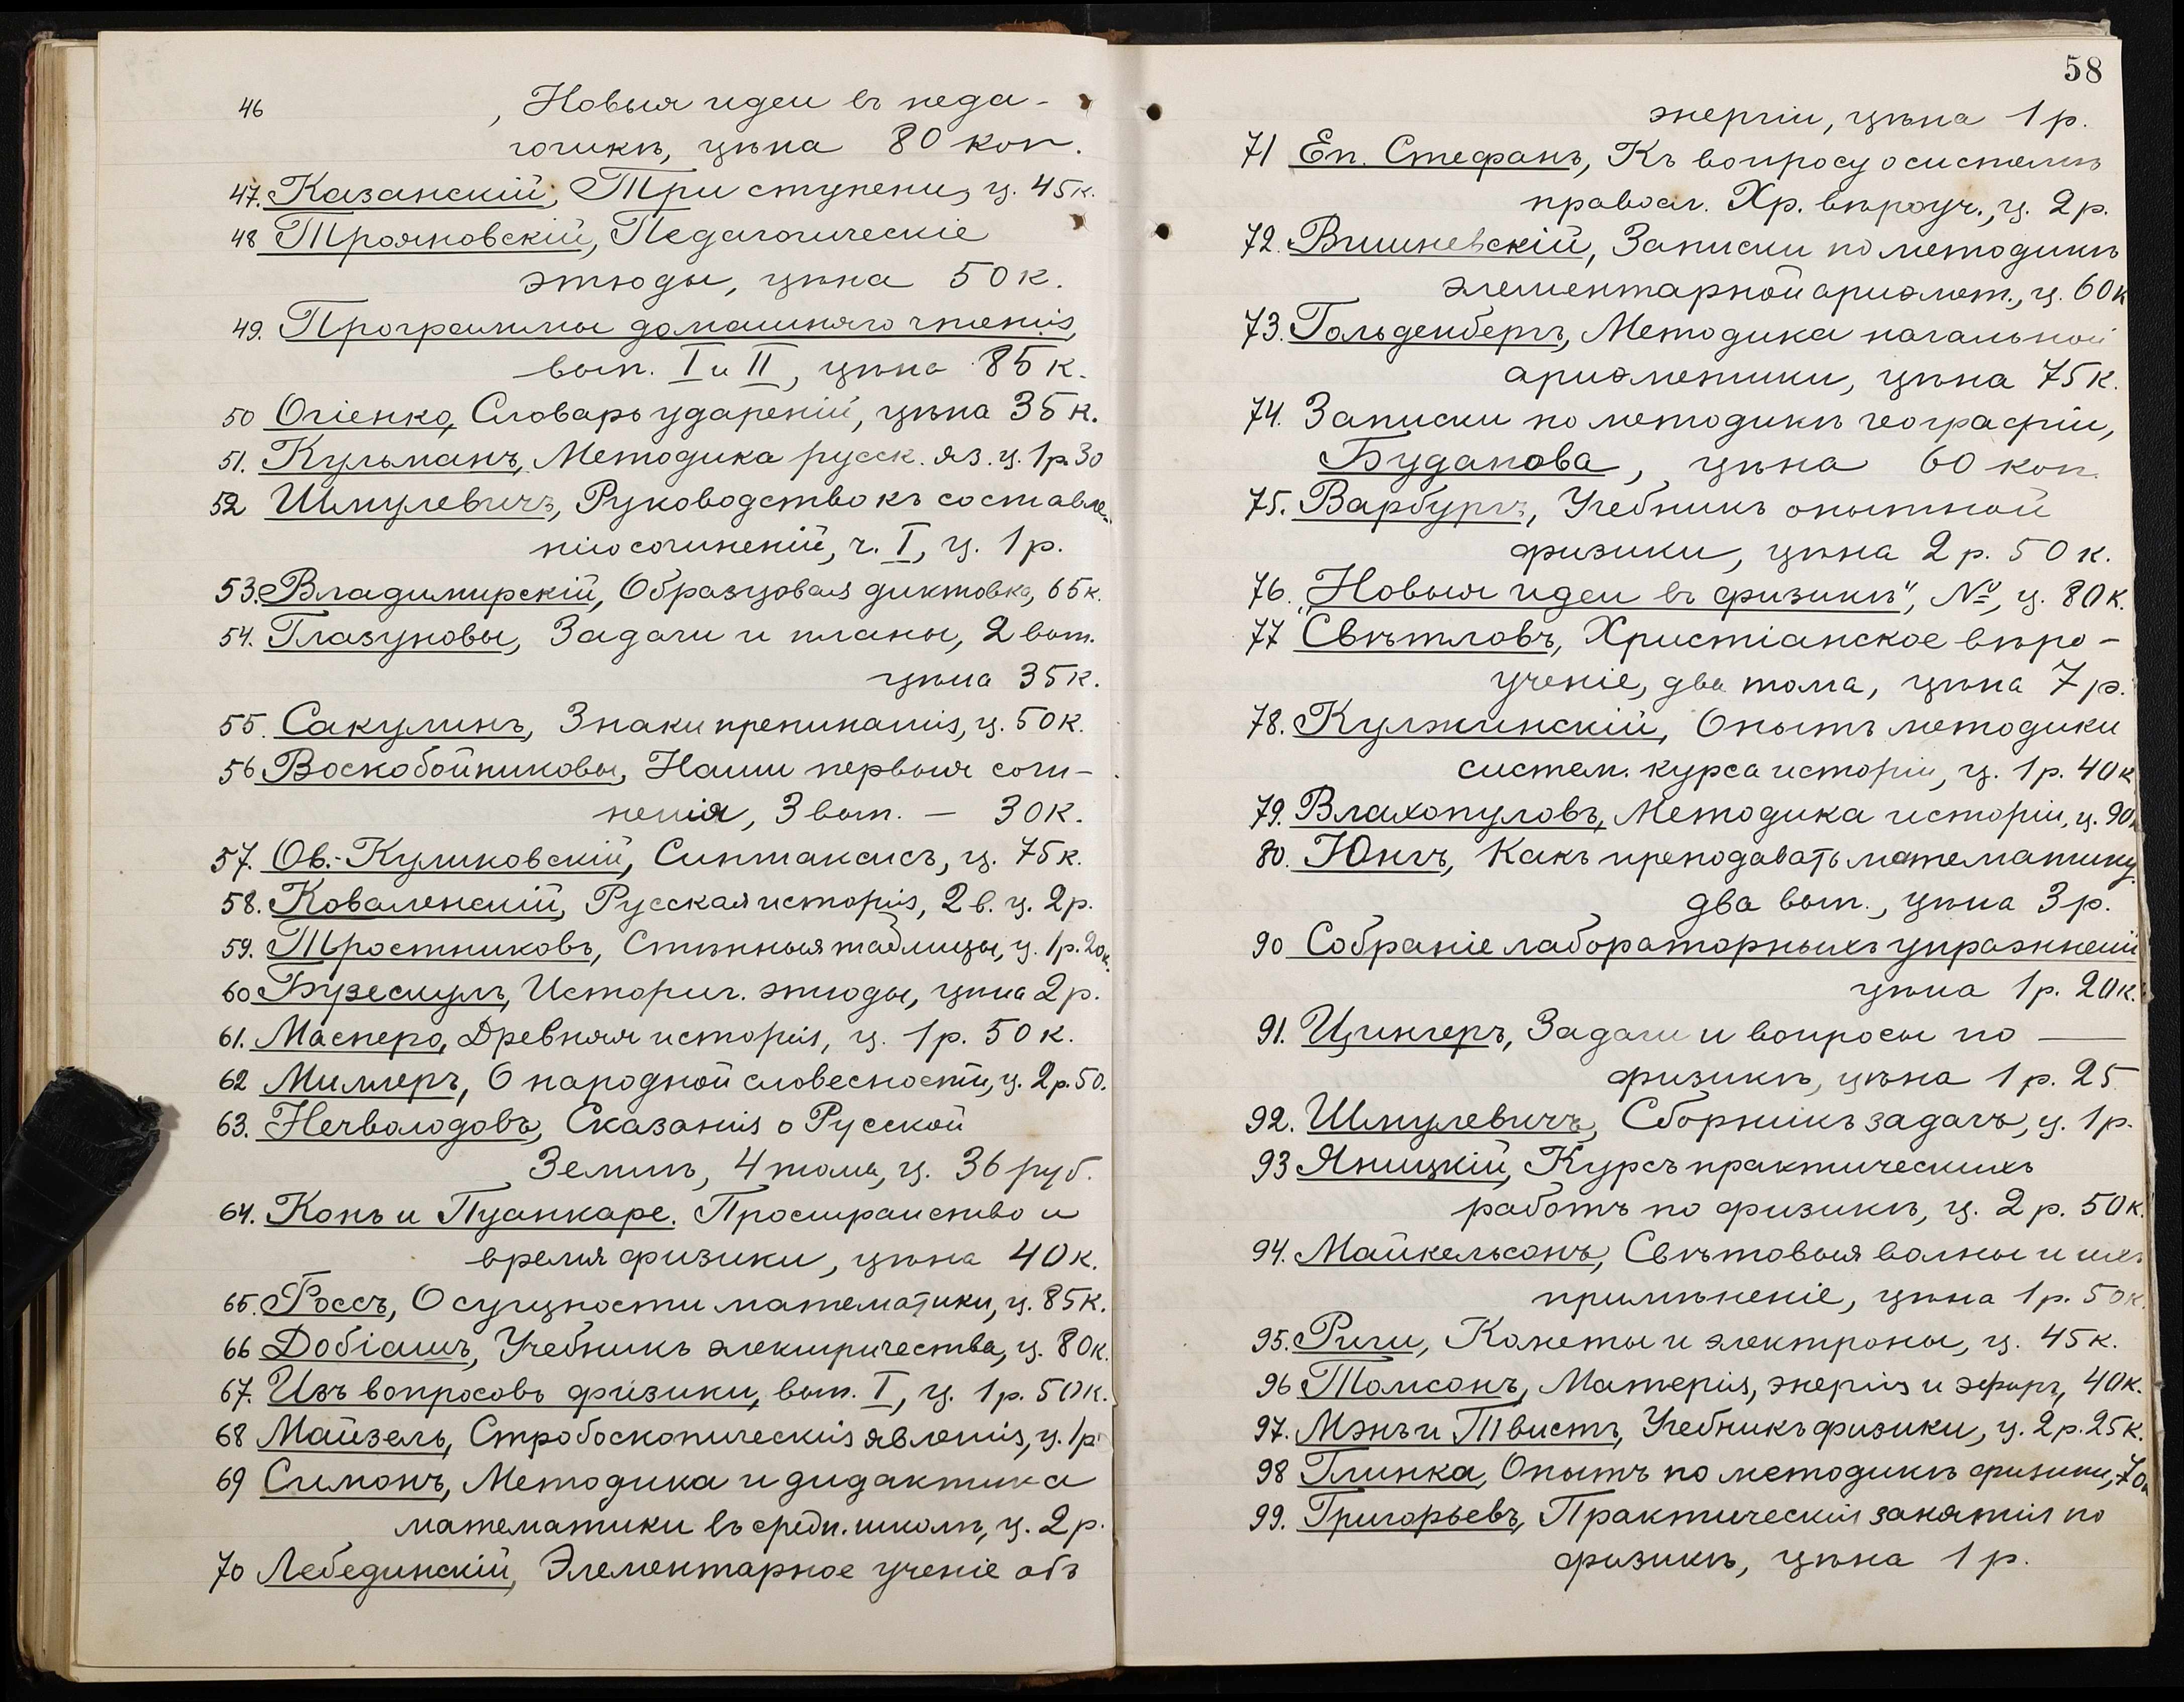 46 , Новыя идеи въ педа-
гогикѣ, цѣна 80 коп.
47. Казанскій, Три ступени, ц. 45 к.
48 Трояновскій, Педагогическіе
этюды, цѣна 50 к.
49. Программы домашняго чтенія,
вып. I и II, цѣна 85 к.
50 Огіенко, Словарь удареній, цѣна 35 к.
51. Кульманъ, Методика русск. яз. ц. 1 р. 30
52 Шмулевичъ, Руководство къ составле-
нію сочиненій, ч. I, ц. 1 р.
53. Владимирскій, Образцовая диктовка, 65 к.
54. Глазуновы, Задачи и планы, 2 вып.
цѣна 35 к.
55. Сакулинъ, Знаки препинанія, ц. 50 к.
56 Воскобойниковы, Наши первыя сочи-
ненія, 3 вып. — 30 к.
57. Ов.-Куликовскій, Синтаксисъ, ц. 75 к.
58. Коваленскій, Русская исторія, 2 в. ц. 2 р.
59. Тростниковъ, Стѣнныя таблицы, ц. 1 р. 20 к.
60 Бузескулъ, Историч. этюды, цѣна 2 р.
61. Масперо, Древняя исторія, ц. 1 р. 50 к.
62 Миллеръ, О народной словесности, ц. 2 р. 50.
63. Нечволодовъ, Сказанія о Русской
Землѣ, 4 тома, ц. 36 руб.
64. Конъ и Пуанкаре. Пространство и
время физики, цѣна 40 к.
65. Россъ, О сущности математики, ц. 85 к.
66 Добіашъ, Учебникъ электричества, ц. 80 к.
67. Изъ вопросовъ физики, вып. I, ц. 1 р. 50 к.
68 Майзель, Стробоскопическія явленія, ц. 1 р.
69 Симонъ, Методика и дидактика
математики въ средн. школѣ, ц. 2 р.
70 Лебединскій, Элементарное ученіе объ
58
энергіи, цѣна 1 р.
71 Еп. Стефанъ, Къ вопросу о системѣ
правосл. Хр. вѣроуч., ц. 2 р.
72. Вишневскій, Записки по методикѣ
элементарной ариѳмет., ц. 60 к
73. Гольденбергъ, Методика начальной
ариѳметики, цѣна 75 к.
74. Записки по методикѣ географіи,
Буданова, цѣна 60 коп.
75. Варбургъ, Учебникъ опытной
физики, цѣна 2 р. 50 к.
76. „Новыя идеи въ физикѣ", №, ц. 80 к.
77 Свѣтловъ, Христіанское вѣро-
ученіе, два тома, цѣна 7 р.
78. Кулжинскій, Опытъ методики
систем. курса исторіи, ц. 1 р. 40 к
79. Влахопуловъ, Методика исторіи, ц. 90 к
80. Юнгъ, Какъ преподавать математику
два вып., цѣна 3 р.
90 Собраніе лабораторныхъ упражненій
цѣна 1 р. 20 к.
91. Цингеръ, Задачи и вопросы по —
физикѣ, цѣна 1 р. 25
92. Шмулевичъ, Сборникъ задачъ, ц. 1 р.
93 Яницкій, Курсъ практическихъ
работъ по физикѣ, ц. 2 р. 50 к.
94. Майкельсонъ, Свѣтовыя волны и ихъ
примѣненіе, цѣна 1 р. 50 к.
95. Риги, Кометы и электроны, ц. 45 к.
96 Томсонъ, Матерія, энергія и эфиръ, 40 к.
97. Мэнъ и Твистъ, Учебникъ физики, ц. 2 р. 25 к.
98 Глинка, Опытъ по методикѣ физики, 70 к
99. Григорьевъ, Практическія занятія по
физикѣ, цѣна 1 р.